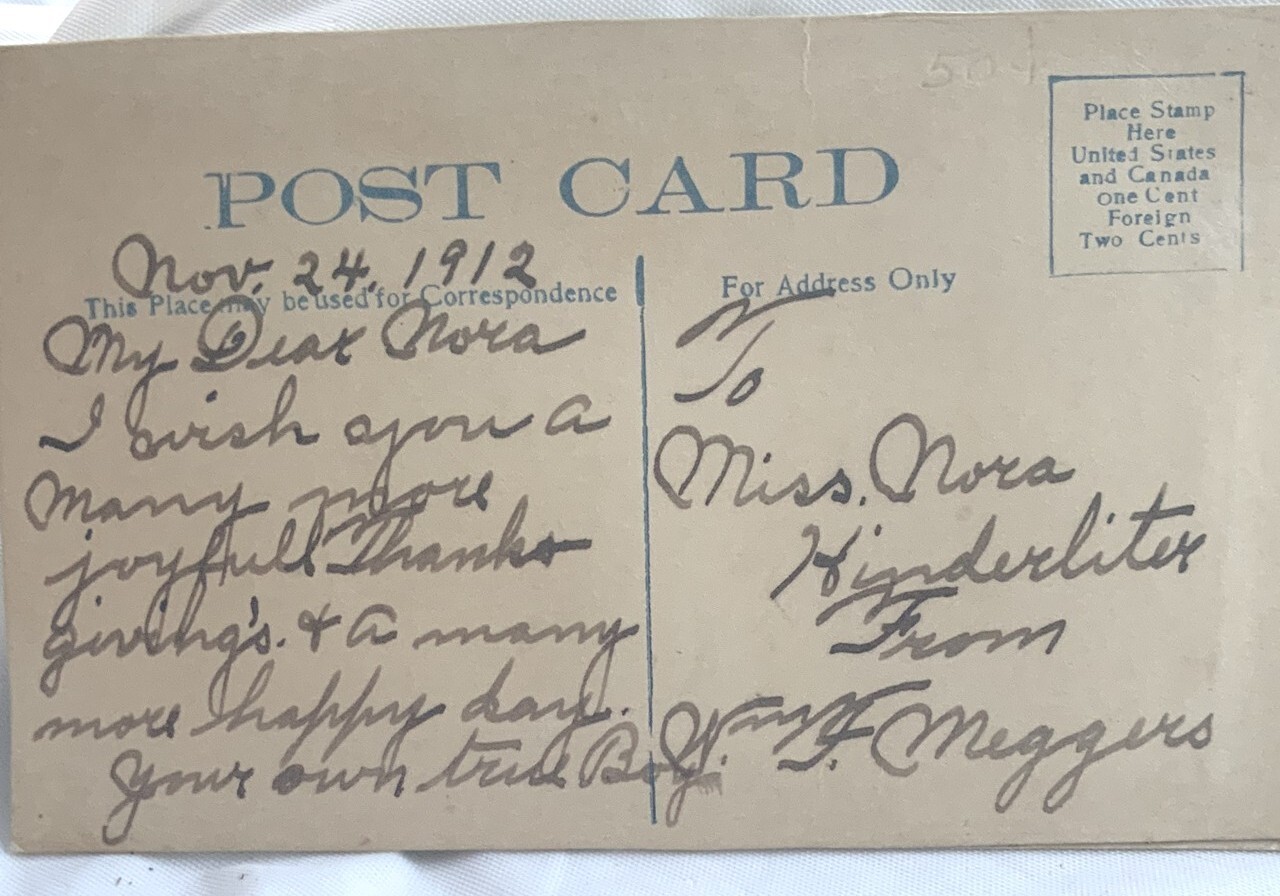 504
POST CARD
Place Stamp
Here
United States
and Canada
one Cent
Foreign
Two Cents
Nov. 24, 1912
This Place may be used for Correspondence
My Dear Nora
I wish you a
many more
joyfull Thanks
giving's. & a many
more happy day.
Your own true Boy.
For Address Only
To
Miss. Nora
Kinderliter
From
Wm. F. Meggers